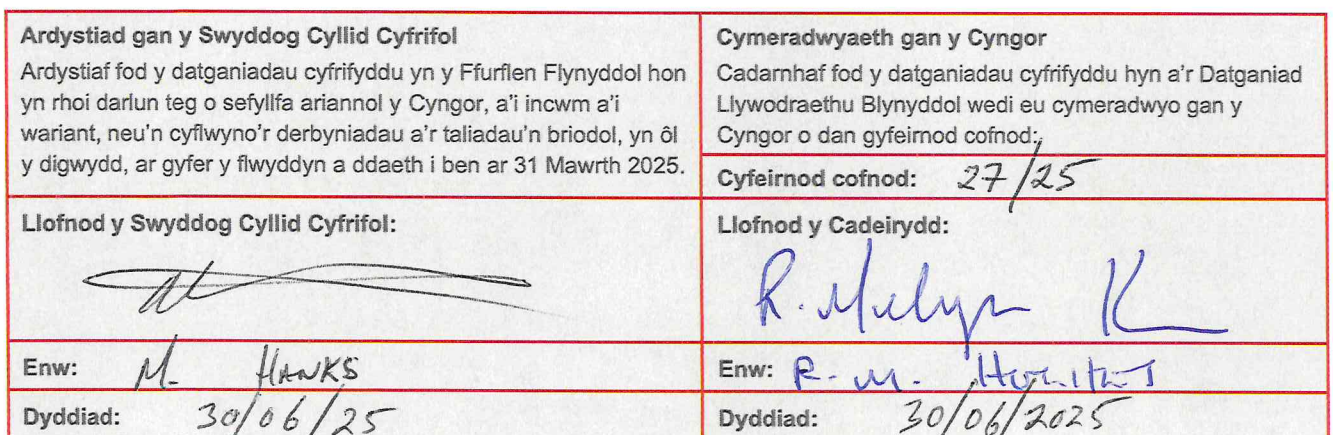 Ardystiad gan y Swyddog Cyllid Cyfrifol
Ardystiaf fod y datganiadau cyfrifyddu yn y Ffurflen Flynyddol hon
yn rhoi darlun teg o sefyllfa ariannol y Cyngor, a'i incwm a'i
wariant, neu'n cyflwyno'r derbyniadau a'r taliadau'n briodol, yn ôl
y digwydd, ar gyfer y flwyddyn a ddaeth i ben ar 31 Mawrth 2025.
Llofnod y Swyddog Cyllid Cyfrifol:
Enw: M. HANKS
Dyddiad: 30/06/25
Cymeradwyaeth gan y Cyngor
Cadarnhaf fod y datganiadau cyfrifyddu hyn a'r Datganiad
Llywodraethu Blynyddol wedi eu cymeradwyo gan y
Cyngor o dan gyfeirnod cofnod:
Cyfeirnod cofnod: 27/25
Llofnod y Cadeirydd:
R.
Enw: R. M.
Dyddiad: 30/06/2025